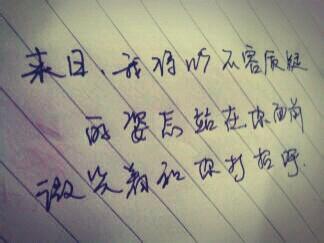 来日、我将以不容质疑
的姿态站在你面前
微笑着和你打招呼.